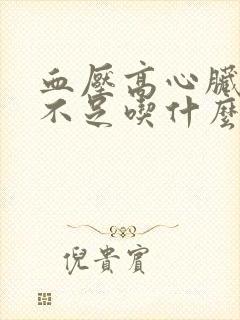 血壓高心臟
不足喫什麼
倪貴賓